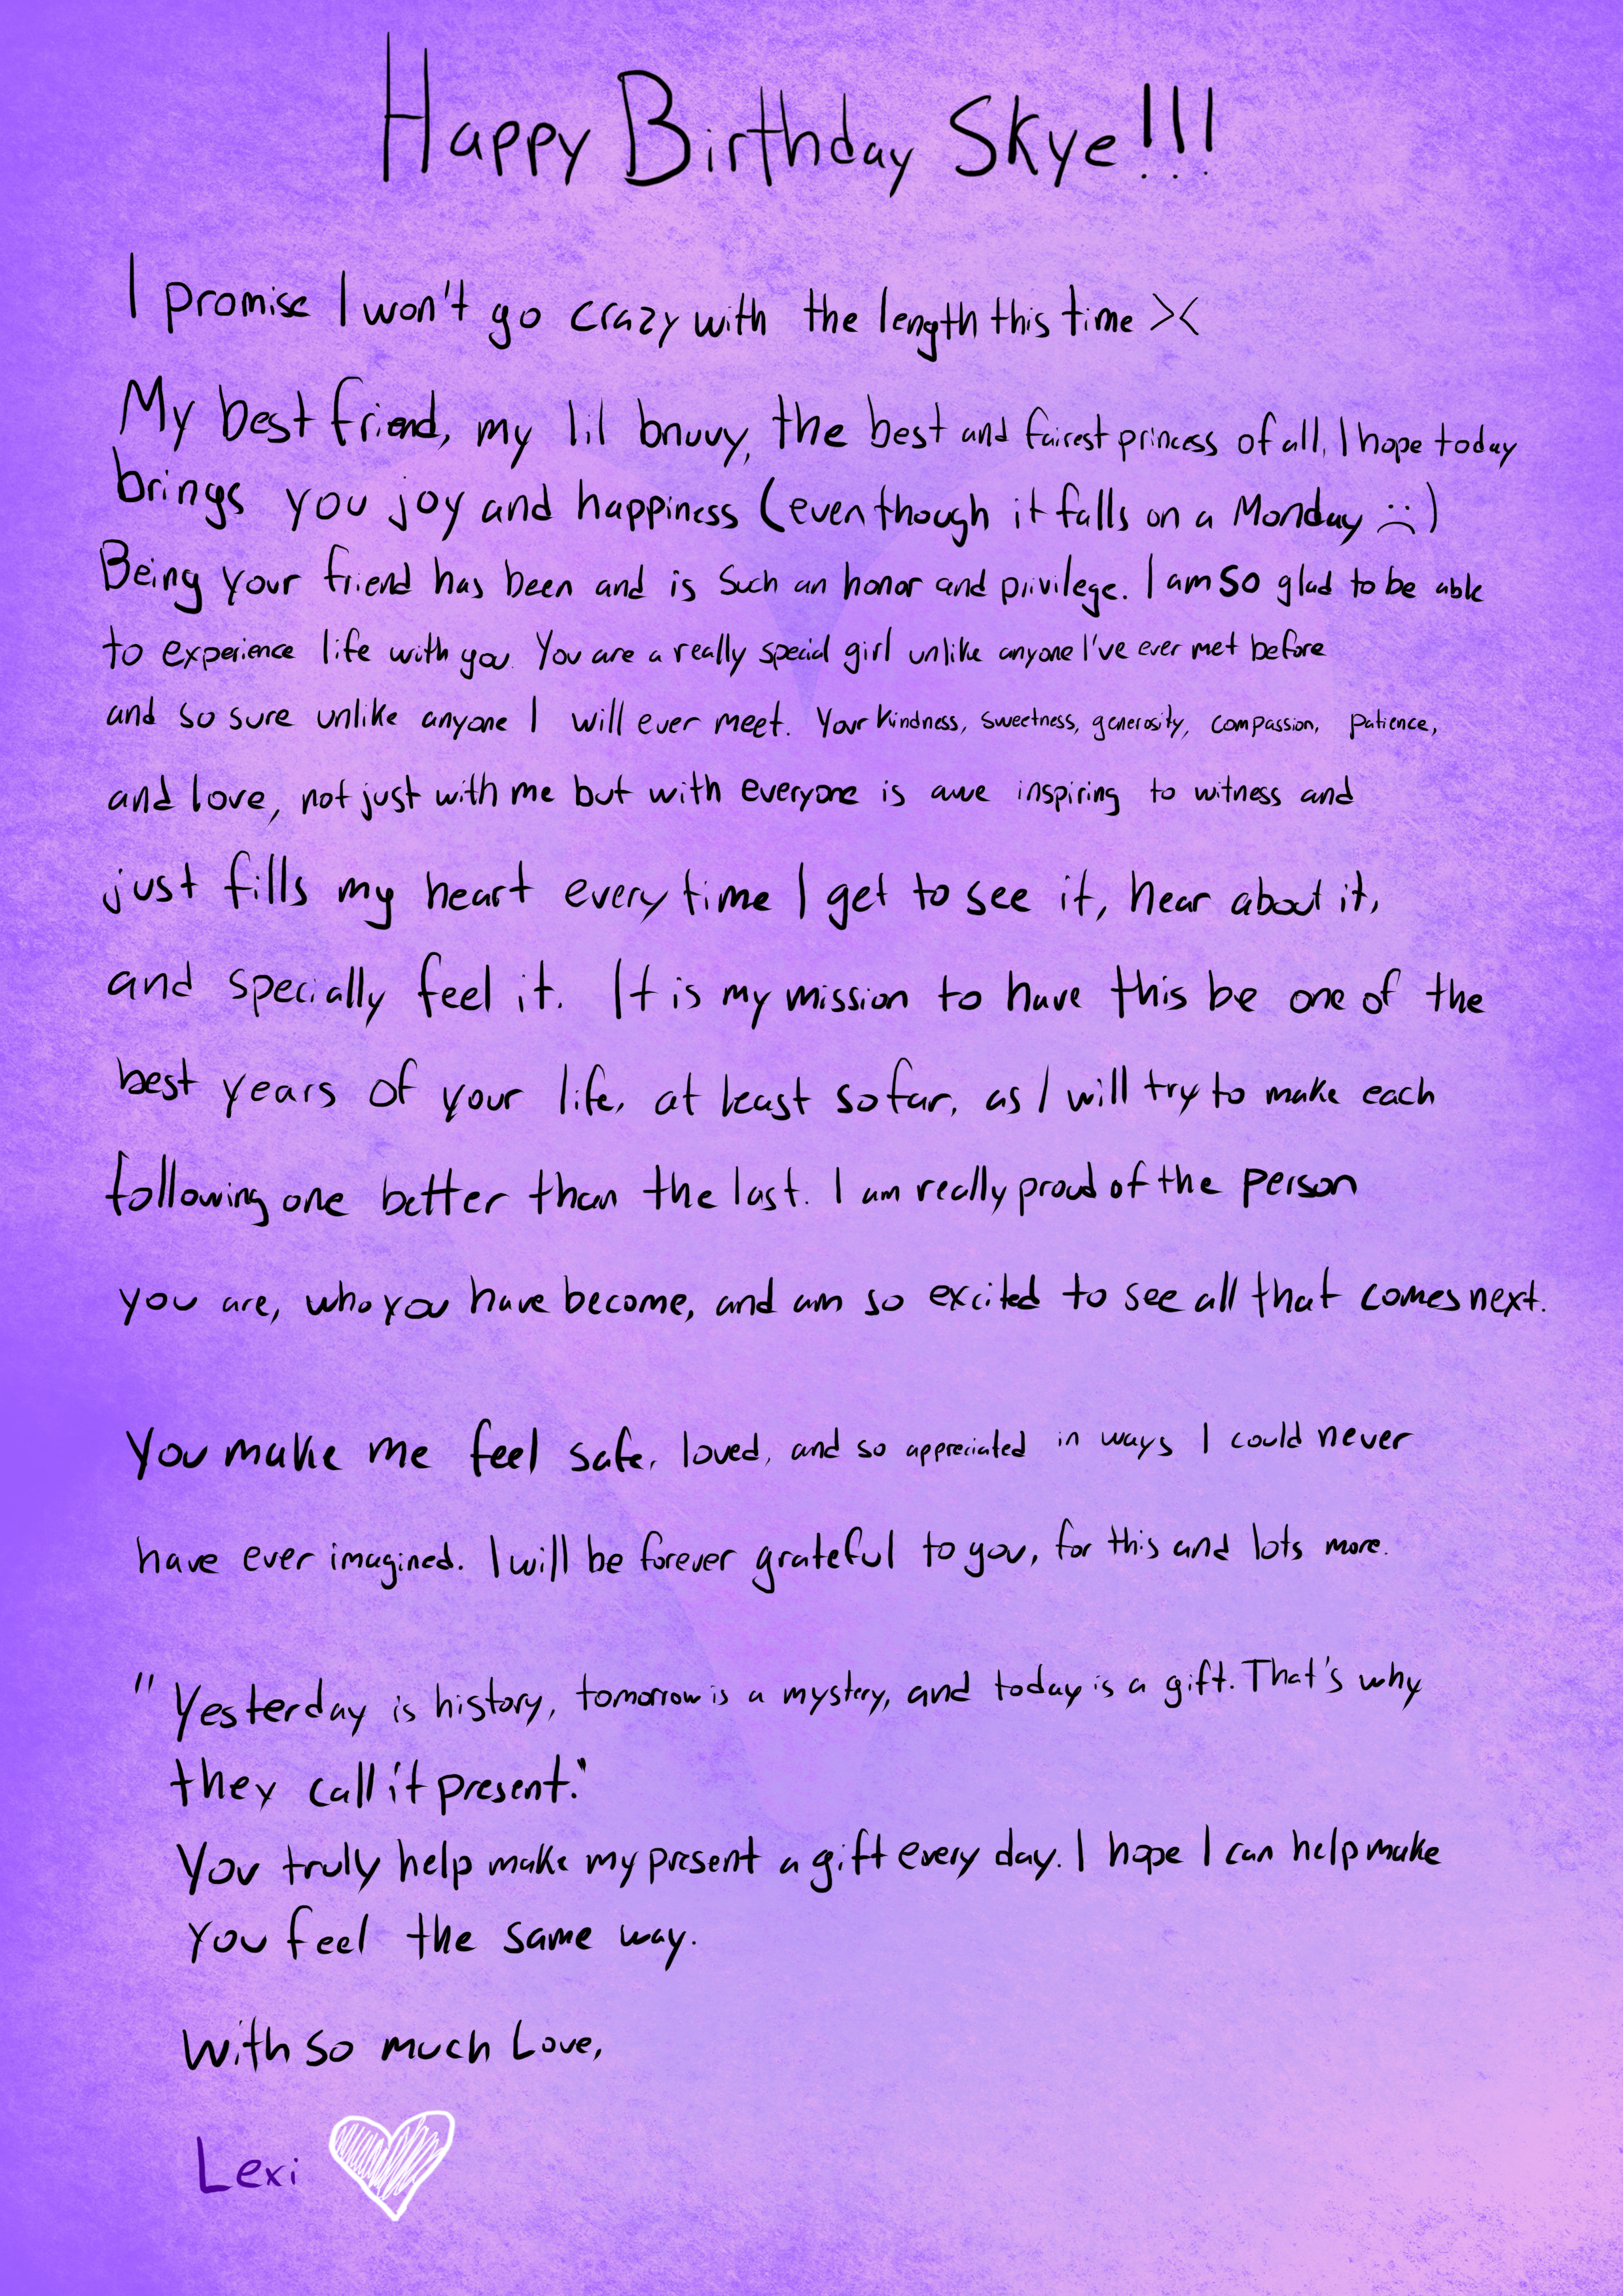 Happy Birthday Skye!!!
I promise I won't go crazy with the length this time ><
My best friend, my lil bruvy, the best and fairest princess of all, I hope today
brings you joy and happiness (even though it falls on a Monday :( )
Being your friend has been and is such an honor and privilege. I am so glad to be able
to experience life with you. You are a really special girl unlike anyone I've ever met before
and so sure unlike anyone I will ever meet. Your kindness, sweetness, generosity, compassion, patience,
and love, not just with me but with everyone is awe inspiring to witness and
just fills my heart every time I get to see it, hear about it,
and specially feel it. It is my mission to have this be one of the
best years of your life, at least so far, as I will try to make each
following one better than the last. I am really proud of the person
you are, who you have become, and am so excited to see all that comes next.
You make me feel safe, loved, and so appreciated in ways I could never
have ever imagined. I will be forever grateful to you, for this and lots more.
"Yesterday is history, tomorrow is a mystery, and today is a gift. That's why
they call it present."
You truly help make my present a gift every day. I hope I can help make
you feel the same way.
With so much Love,
Lexi